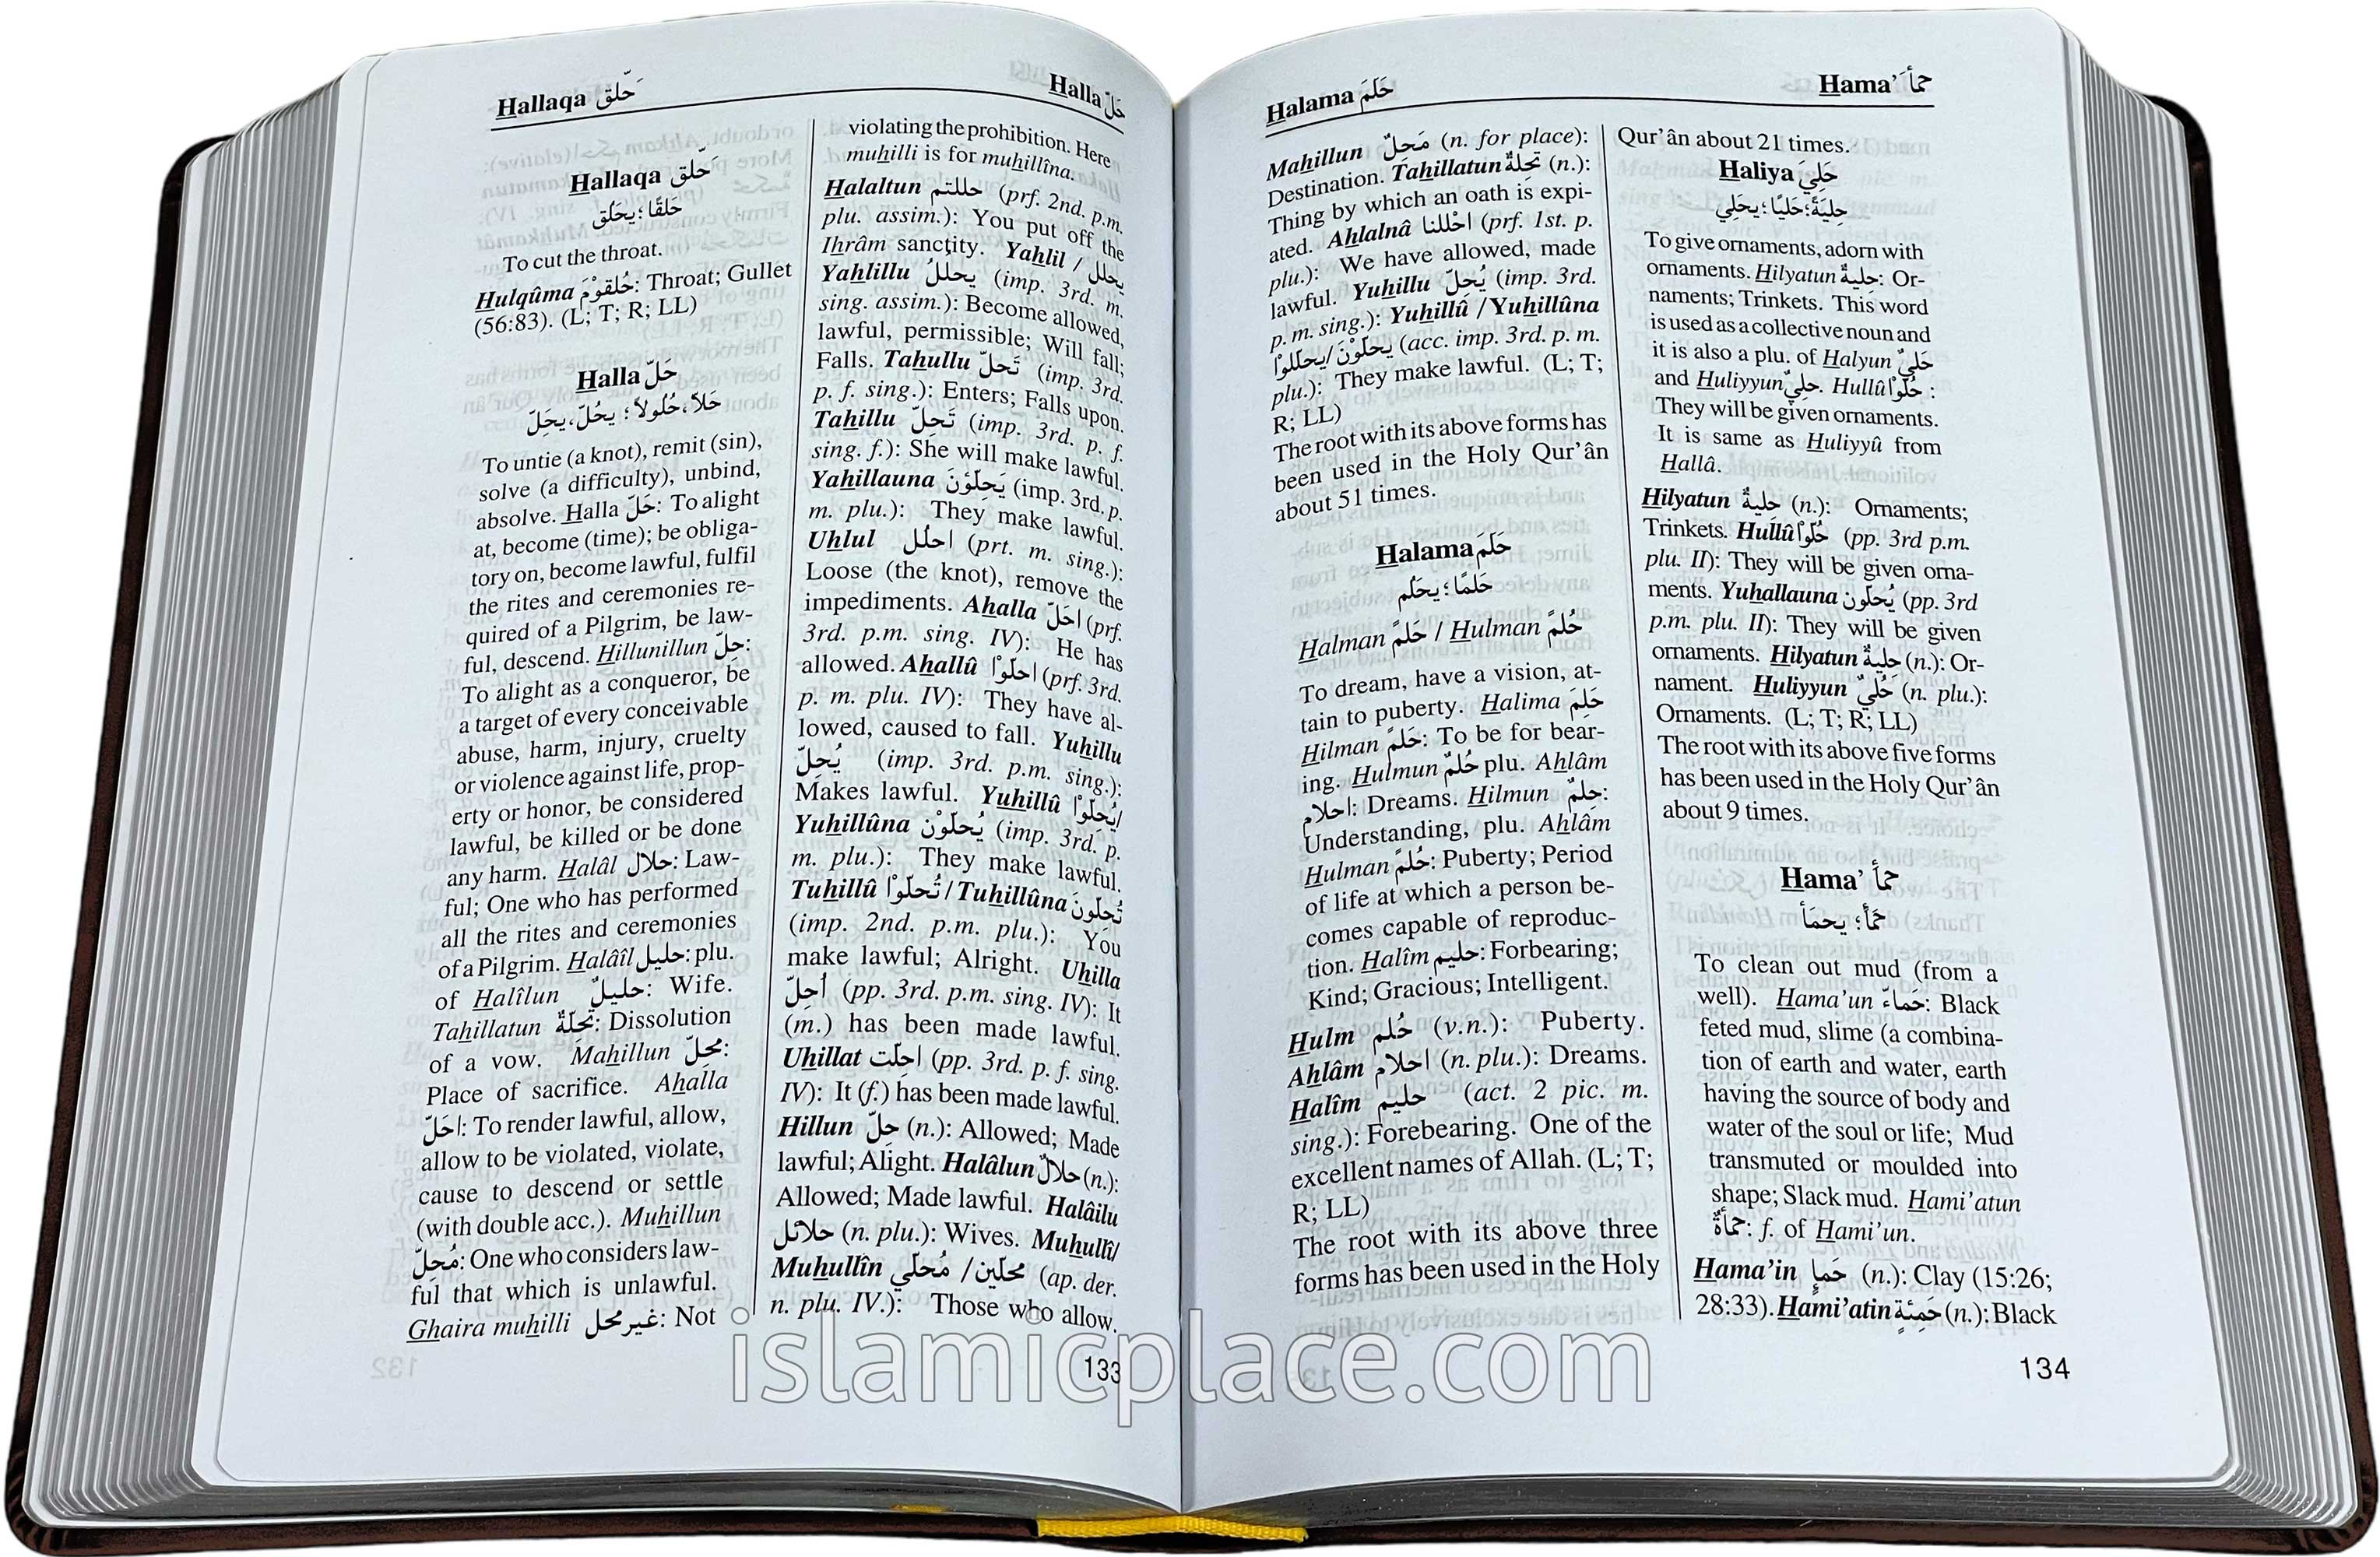 Hallaqa حَلّق
Halla حَلّ
Hallaqa حَلّق
حَلقًا؛ يحَلُق
To cut the throat.
Hulqûma حُلقوْمَ: Throat; Gullet
(56:83). (L; T; R; LL)
Halla حَلّ
حَلاً، حُلُولاً؛ يحُلّ، يحَِلّ
To untie (a knot), remit (sin),
solve (a difficulty), unbind,
absolve. Halla حَلّ: To alight
at, become (time); be obliga-
tory on, become lawful, fulfil
the rites and ceremonies re-
quired of a Pilgrim, be law-
ful, descend. Hillunillun حِلّ:
To alight as a conqueror, be
a target of every conceivable
abuse, harm, injury, cruelty
or violence against life, prop-
erty or honor, be considered
lawful, be killed or be done
any harm. Halâl حلال: Law-
ful; One who has performed
all the rites and ceremonies
of a Pilgrim. Halâîl حليل: plu.
of Halîlun حليلٌ: Wife.
Tahillatun تحِلّةٌ: Dissolution
of a vow. Mahillun محِلّ:
Place of sacrifice. Ahalla
احَلّ: To render lawful, allow,
allow to be violated, violate,
cause to descend or settle
(with double acc.). Muhillun
مُحِلّ: One who considers law-
ful that which is unlawful.
Ghaira muhilli غيرمحل: Not
violating the prohibition. Here
muhilli is for muhillîna.
Halaltun حللتم (prf. 2nd. p.m.
plu. assim.): You put off the
Ihrâm sanctity. Yahlil / يحلل
Yahlillu يحللُ (imp. 3rd. m.
sing. assim.): Become allowed,
lawful, permissible; Will fall;
Falls. Tahullu تَحلّ (imp. 3rd.
p. f. sing.): Enters; Falls upon.
Tahillu تَحِلّ (imp. 3rd. p. f.
sing. f.): She will make lawful.
Yahillauna يَحِلّوْنَ (imp. 3rd. p.
m. plu.): They make lawful.
Uhlul احلُل (prt. m. sing.):
Loose (the knot), remove the
impediments. Ahalla احَلّ (prf.
3rd. p.m. sing. IV): He has
allowed. Ahallû احَلّوْا (prf. 3rd.
p. m. plu. IV): They have al-
lowed, caused to fall. Yuhillu
يُحِلّ (imp. 3rd. p.m. sing.):
Makes lawful. Yuhillû يُحِلّوْا/
Yuhillûna يُحلّوْن (imp. 3rd. p.
m. plu.): They make lawful.
Tuhillû تُحلّوْا / Tuhillûna تُحِلّونَ
(imp. 2nd. p.m. plu.): You
make lawful; Alright. Uhilla
أُحِلّ (pp. 3rd. p.m. sing. IV): It
(m.) has been made lawful.
Uhillat احِلّت (pp. 3rd. p. f. sing.
IV): It (f.) has been made lawful.
Hillun حِلّ (n.): Allowed; Made
lawful; Alight. Halâlun حلالٌ (n.):
Allowed; Made lawful. Halâilu
حلائل (n. plu.): Wives. Muhullî/
Muhullîn محلّين/ مُحَلّي (ap. der.
n. plu. IV.): Those who allow.
133
Halama حَلَمَ
Hama’ حمأَ
Mahillun مَحلٌ (n. for place):
Destination. Tahillatun تحَِلةٌ (n.):
Thing by which an oath is expi-
ated. Ahlalnâ احْللنا (prf. 1st. p.
plu.): We have allowed, made
lawful. Yuhillu يُحلّ (imp. 3rd.
p. m. sing.): Yuhillû / Yuhillûna
يحلّوْنَ/يحلّلوْا (acc. imp. 3rd. p. m.
plu.): They make lawful. (L; T;
R; LL)
The root with its above forms has
been used in the Holy Qur’ân
about 51 times.
Halama حَلَمَ
حَلمًا؛ يحَلُم
Halman حَلمً / Hulman حُلمً
To dream, have a vision, at-
tain to puberty. Halima حَلِمَ
Hilman حَلمً: To be for bear-
ing. Hulmun حُلمٌ plu. Ahlâm
احلام: Dreams. Hilmun حِلمٌ:
Understanding, plu. Ahlâm
Hulman حُلمً: Puberty; Period
of life at which a person be-
comes capable of reproduc-
tion. Halîm حليم: Forbearing;
Kind; Gracious; Intelligent.
Hulm حُلم (v.n.): Puberty.
Ahlâm احلام (n. plu.): Dreams.
Halîm حليم (act. 2 pic. m.
sing.): Forebearing. One of the
excellent names of Allah. (L; T;
R; LL)
The root with its above three
forms has been used in the Holy
Qur’ân about 21 times.
Haliya حَلِيَ
حِليَةً؛حَليًا؛ يحلِي
To give ornaments, adorn with
ornaments. Hilyatun حِليةٌ: Or-
naments; Trinkets. This word
is used as a collective noun and
it is also a plu. of Halyun حَليٌ
and Huliyyun حِليٌ. Hullû حُلُوْا :
They will be given ornaments.
It is same as Huliyyû from
Hallâ.
Hilyatun حليةٌ (n.): Ornaments;
Trinkets. Hullû حُلّوْا (pp. 3rd p.m.
plu. II): They will be given orna-
ments. Yuhallauna يُحلّون (pp. 3rd
p.m. plu. II): They will be given
ornaments. Hilyatun حِليةٌ (n.): Or-
nament. Huliyyun حُليٌ (n. plu.):
Ornaments. (L; T; R; LL)
The root with its above five forms
has been used in the Holy Qur’ân
about 9 times.
Hama’ حمأَ
حَمَأً؛ يحمَأ
To clean out mud (from a
well). Hama’un حَماءٌ: Black
feted mud, slime (a combina-
tion of earth and water, earth
having the source of body and
water of the soul or life; Mud
transmuted or moulded into
shape; Slack mud. Hami’atun
حمأةٌ: f. of Hami’un.
Hama’in حَمإٍ (n.): Clay (15:26;
28:33). Hami’atin حَمِئةٍ (n.): Black
134
islamicplace.com